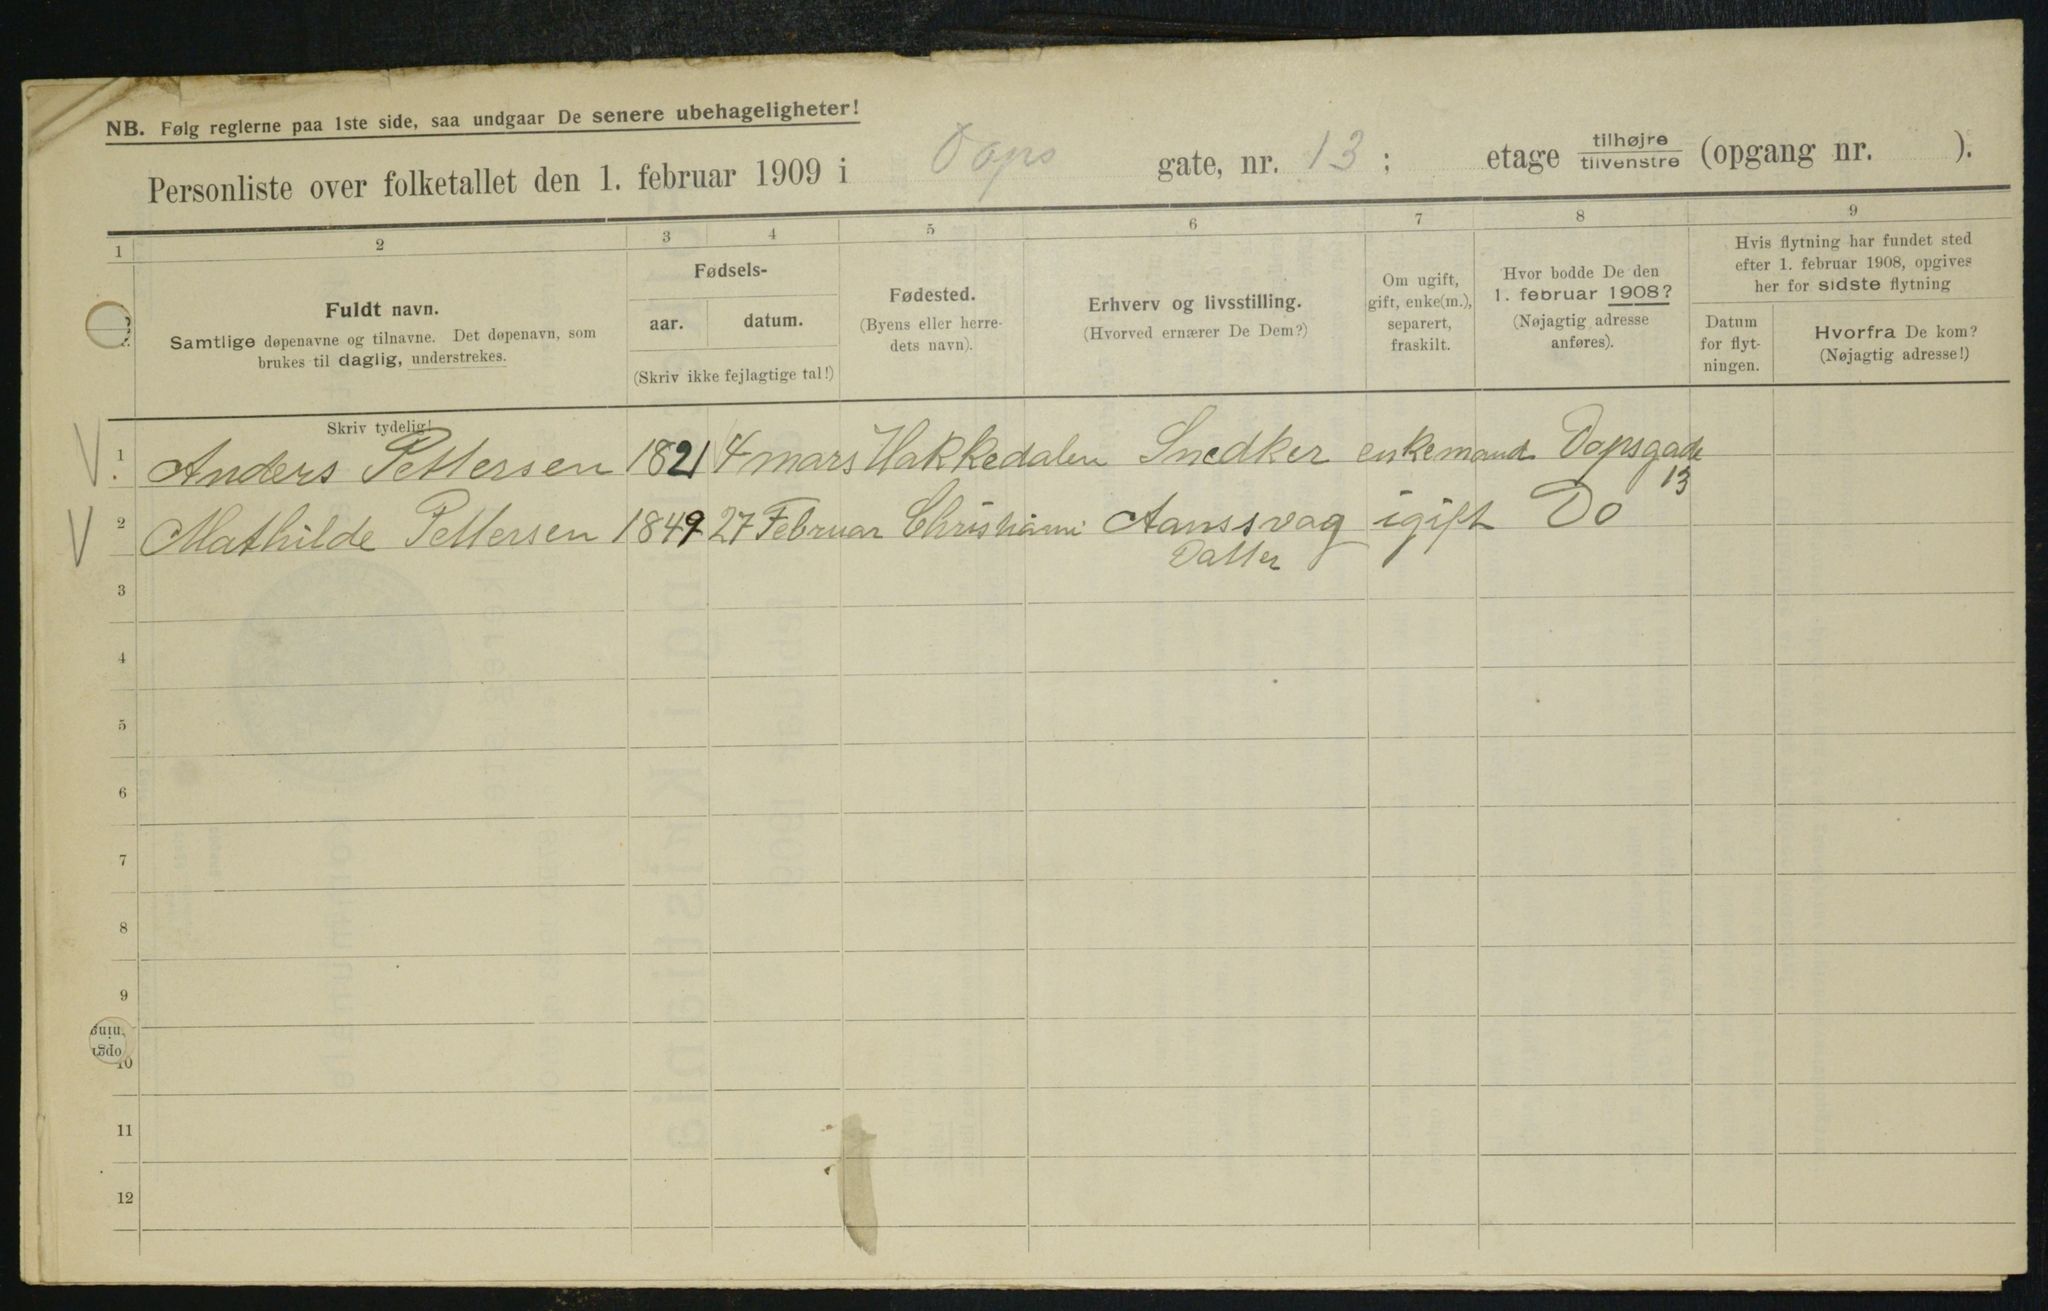 NB. Følg reglerne paa 1ste side, saa undgaar De senere ubehageligheter!
Personliste over folketallet den 1. februar 1909 i Dops gate, nr. 13; etage tilhøjre tilvenstre (opgang nr. ).
1 2 3 4 5 6 7 8 9
Fuldt navn.
Samtlige døpenavne og tilnavne. Det døpenavn, som
brukes til daglig, understrekes.
Skriv tydelig!
Fødsels-
aar. datum.
(Skriv ikke fejlagtige tal!)
Fødested.
(Byens eller herre-
dets navn).
Erhverv og livsstilling.
(Hvorved ernærer De Dem?)
Om ugift,
gift, enke(m.),
separert,
fraskilt.
Hvor bodde De den
1. februar 1908?
(Nøjagtig adresse
anføres).
Hvis flytning har fundet sted
efter 1. februar 1908, opgives
her for sidste flytning
Datum
for flyt-
ningen.
Hvorfra De kom?
(Nøjagtig adresse!)
V 1 Anders Pettersen 1821 4 mars Hakkedalen Snedker enkemand Dopsgade
13
V 2 Mathilde Pettersen 1849 27 Februar igift Do
Datter
3
4
5
6
7
8
9
10
11
12